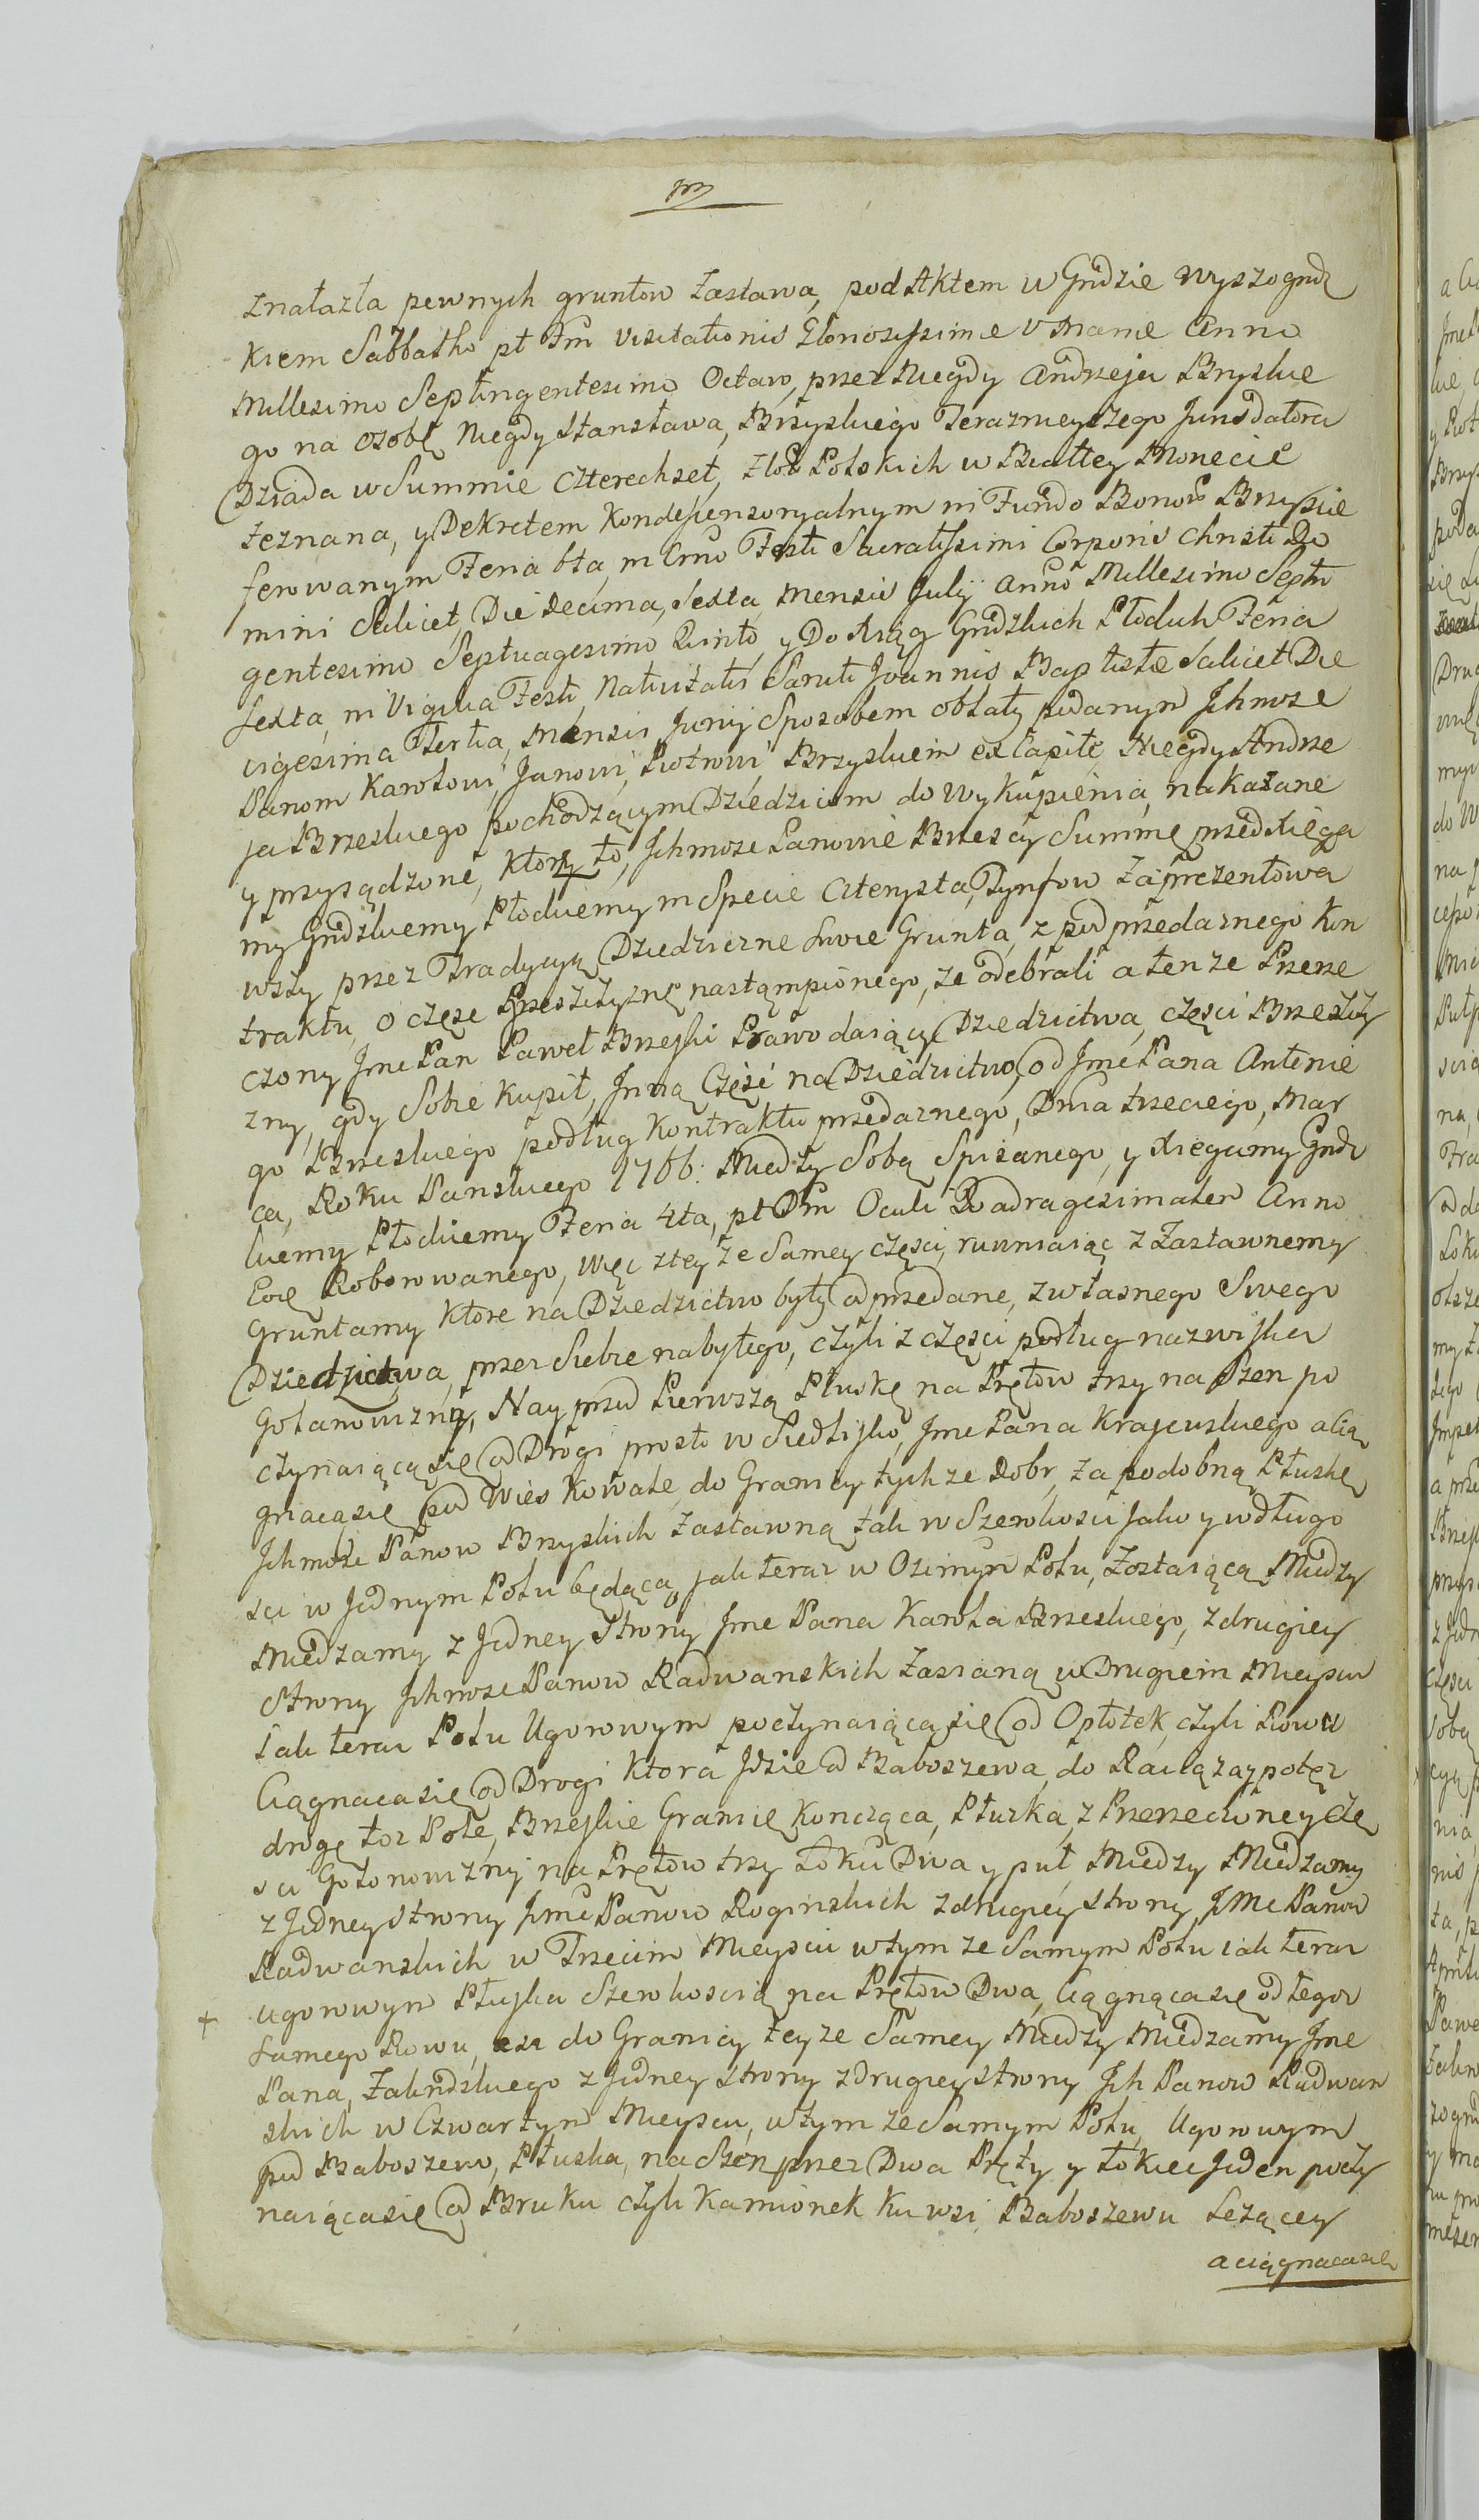 znalazła pewnych gruntow Zastawa, pod Aktem w Grodzie Wyszogrodz
kiem Sabbatho pt Fm Visitationis Gloriosissime V Marie Anno
Millesimo Septingentesimo Octavo, przez Niegdy Andrzeja Bryskie
go na osobę Niegdy Stanisława, Brzyskiego Teraznieyszego Jurisdatora
Dziada w Summie czterechset, złoł Polskich w Białłey Monecie
zeznana, y Dekretem Kondescensoryalnym in Fundo Bonor Brzyskie
ferowanym Feria 6ta in Crno Festi Sacratissimi Corporis Christi Do
mini Scilicet, Die Decima, Sexta, Mensis July Anno Millesimo Septin
gentesimo Septuagesimo Quinto, y Do Xiąg Grodzkich Płockich Feria
sexta, in Vigilia Festi Nativitatis Sancti Joannis Baptiste Scilicet Die
vigesima Tertia, Mensis Junij Sposobem oblaty podanym Jchmosc
Panom Karolowi, Janowi, Piotrowi, Brzyskiem ex Capite Niegdy Andrze
ja Brzeskiego pochodzącym Dziedzicom do Wykupienia, nakazane
y przysądzone, Ktorzy to, Jchmosc Panowie Brzescy Summę przed Xięga
my Grodzkiemy Płockiemy in Specie Czterysta, Tynfow Zaprezentowa
wszy przez Tradycyą Dziedziczne Swoie Grunta, z pod przedaznego Kon
traktu, o częsc Brzeszczyznę nastąmpionego, ze odebrali a tenze Przerze
czony Jmc Pan Paweł Brzeski Prawo daiący Dziedzictwa, części Brzeszczy
zny, gdy Sobie Kupił, Jnną Część na Dziedzictwo, od Jmc Pana Antonie
go Brzeskiego podług Kontraktu przedaznego, Dnia trzeciego, Mar
ca, Roku Panskiego 1766. Miedzy Sobą Spisanego, y Xięgamy Grodz
kiemy Płockiemy Feria 4ta, pt Dm Oculi Quadragesimalem Anno
Eoq Roborowanego, Więc z teyze Samey części, rownaiąc z Zastawnemy
Gruntamy Ktore na Dziedzictwo były odprzedane, z własnego Swego
Dziedzictwa, przez Siebie nabytego, czyli z części podług nazwiska
Gołanowizny, Nay przod Pierwszą Płuskę na Prętow trzy na Szerz po
czynaiącąsię od Drogi prosto w Siedlisko, Jmc Pana Krajewskiego a cią
gnącąsię pod Wies Kowale, do Granicy tychze Dobr, za podobną Płuskę
Jchmosc Panow Brzyskich Zastawną tak w Szerokosci Jako y w długo
sci w Jednym Polu będącą, jak teraz w Ozimym Polu, Zostaiącą, Miedzy
Miedzamy z Jedney Strony Jmc Pana Karola Brzeskiego, z drugiey
Strony Jchmosc Panow Radwanskich Zasianą w Drugiem Mieyscu
iak teraz Polu Ugorowym poczynaiącąsię od Opłotek, czyli Rowu
Ciągnącasię od Drogi Ktora Jdzie od Baboszewa, do Raciąza y potęz
drogę toz Pole, Brzeskie Granicę Konczącą, Płuzka, z Przerzeczoney Czę
sci Gołonowizny na Prętow trzy Łokci Dwa y puł, Miedzy Miedzamy
z Jedney strony Jmc Panow Roginskich z drugiey strony JMc Panow
Radwanskich w Trzecim Mieyscu w tym ze Samym Polu iak teraz
+ Ugorowym Płuska Szerokoscią na Prętow Dwa, Ciągnącasię od tegoz
Samego Rowu, asz do Granicy teyze Samey Miedzy Miedzamy Jmc
Pana, Zalindzkiego z Jedney strony z drugiey strony Jch Panow Radwan
skich w Czwartym Mieyscu, w tym ze Samym Polu, Ugorowym
pod Baboszewo, Płuska, na Szerz przez Dwa Pręty y Łokiec Jeden poczy
naiącasię od Bruku czyli Kamionek Ku wsi Baboszewu Lezącey
a ciągnącasię